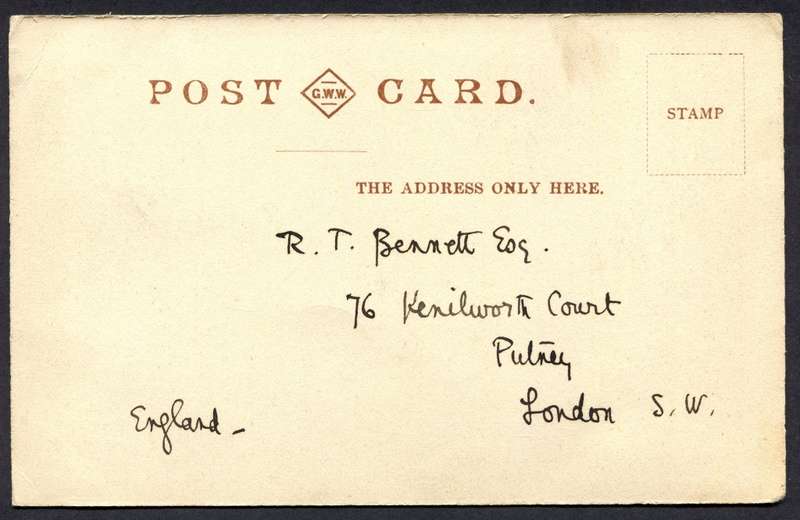 POST G.W.W. CARD.
STAMP
THE ADDRESS ONLY HERE.
R. T. Bennett Esq.
76 Kenilworth Court
Putney
London S.W.
England-